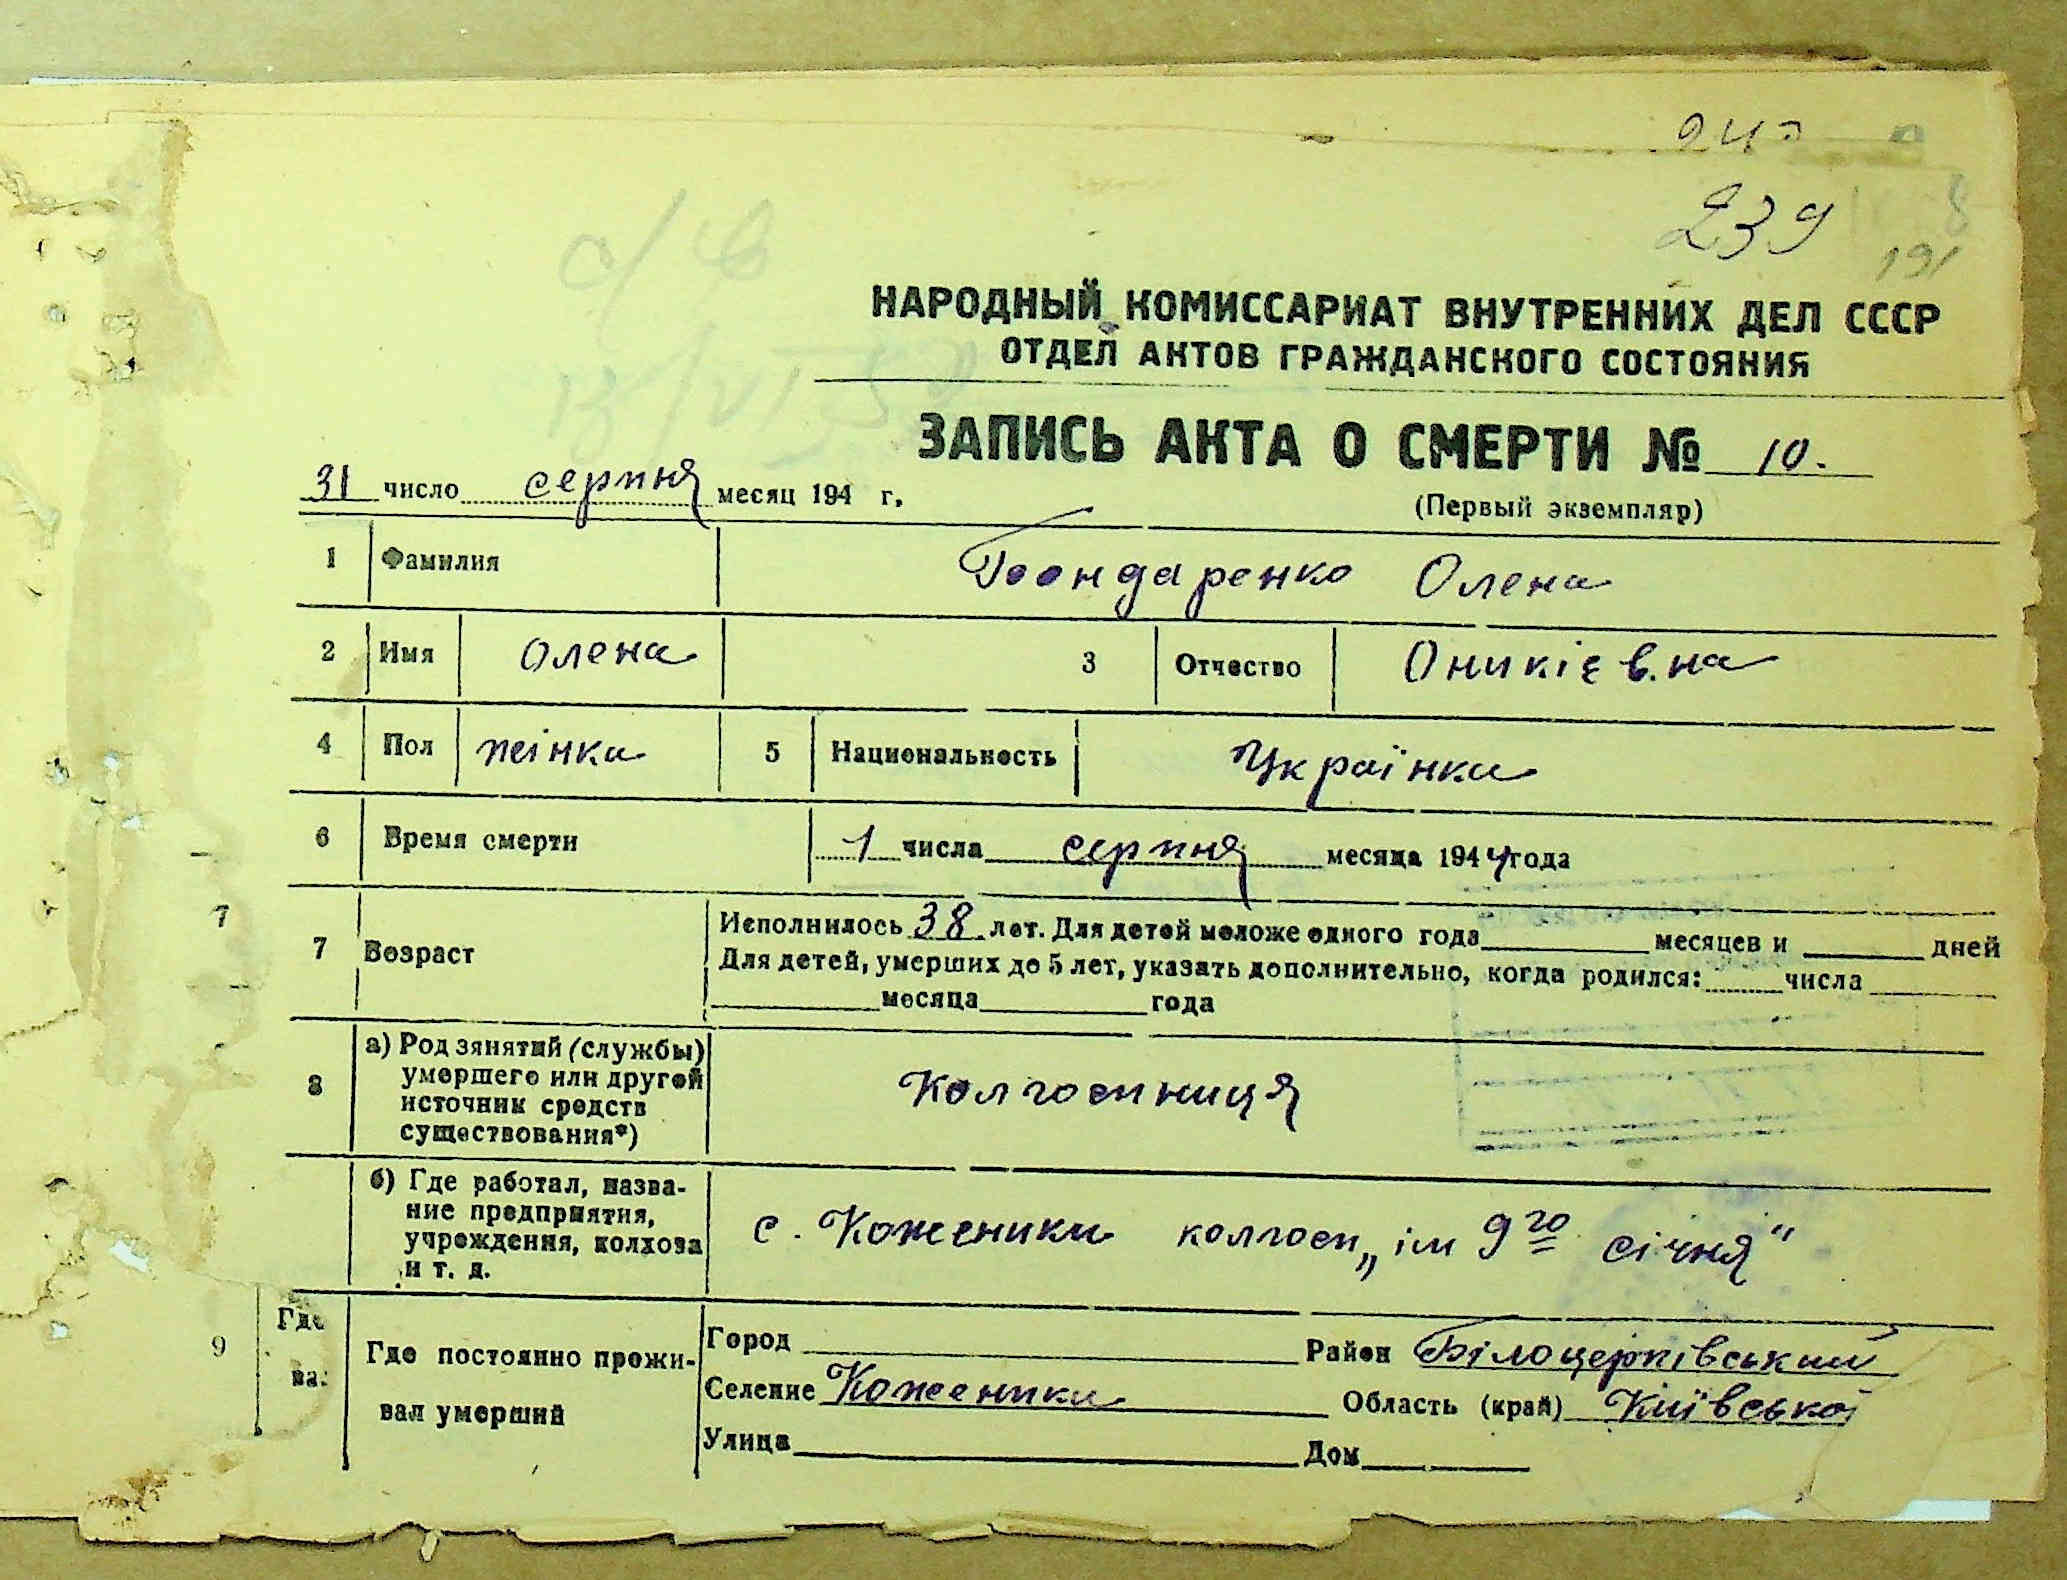 239
191
НАРОДНЫЙ КОМИССАРИАТ ВНУТРЕННИХ ДЕЛ СССР
ОТДЕЛ АКТОВ ГРАЖДАНСКОГО СОСТОЯНИЯ
ЗАПИСЬ АКТА О СМЕРТИ № 10.
31 число серпня месяц 194 г.
(Первый экземпляр)
1 Фамилия Бондаренко Олена
2 Имя Олена 3 Отчество Оникієвна
4 Пол жінка 5 Национальность Українка
6 Время смерти 1 числа серпня месяца 1944 года
7
7 Возраст Исполнилось 38 лет. Для детей моложе одного года месяцев и дней
Для детей, умерших до 5 лет, указать дополнительно, когда родился: числа
месяца года
8 а) Род занятий (службы) умершего или другой источник средств существования*) Колгоспниця
б) Где работал, название предприятия, учреждения, колхоза и т. д. с. Коженики колгосп „ім 9го січня"
9 Где постоянно проживал умерший
Город Район Білоцерківський
Селение Коженики Область (край) Київської
Улица Дом